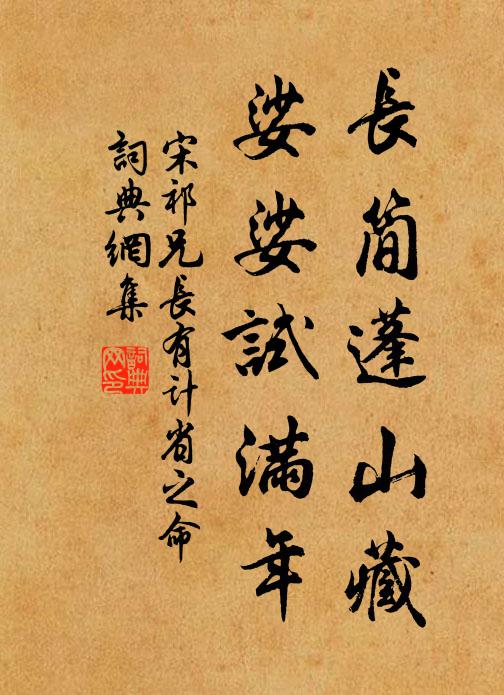 長簡蓬山藏
娑娑試滿年
宋祁兄長有計省之命
詞典網集
詞典网印